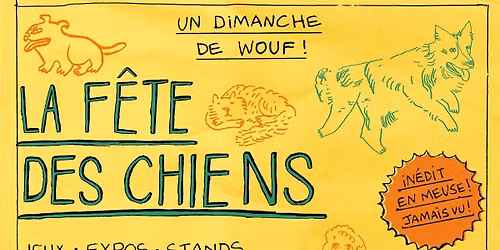 UN DiMANCHE
DE WOUF !
LA FÊTE
DES CHIENS
iNÉDiT
EN MEUSE !
JAMAiS VU !
JEUX • EXPOS • STANDS